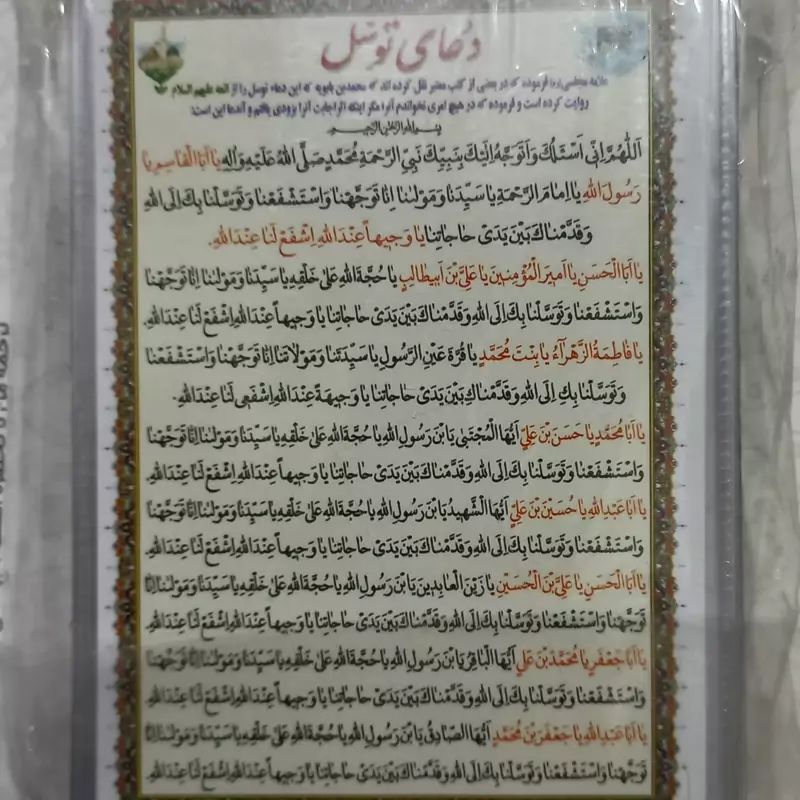 دعای توسل
علامه مجلسی(ره) فرموده که در بعضی از کتب معتبر نقل کرده اند که محمدبن بابویه که این دعاء توسل را از ائمه علیهم السلام
روایت کرده است و فرموده که در هیچ امری نخواندم آنرا مگر اینکه اثر اجابت آنرا بزودی یافتم و آندعا این است:
بسم الله الرحمن الرحیم
اَللّٰهُمَّ اِنّی اَسْئَلُكَ وَاَتَوَجَّهُ اِلَيْكَ بِنَبِيِّكَ نَبِيِّ الرَّحْمَةِ مُحَمَّدٍ صَلَّى اللهُ عَلَيْهِ وَآلِهِ يا اَبَا الْقاسِمِ يا
رَسُولَ اللهِ يا اِمامَ الرَّحْمَةِ يا سَيِّدَنا وَمَوْلٰنا اِنّا تَوَجَّهْنا وَاسْتَشْفَعْنا وَتَوَسَّلْنا بِكَ اِلَى اللهِ
وَقَدَّمْناكَ بَيْنَ يَدَىْ حاجاتِنا يا وَجيهاً عِنْدَاللهِ اِشْفَعْ لَنا عِنْدَاللهِ.
يا اَبَا الْحَسَنِ يا اَميرَ الْمُؤْمِنينَ يا عَلِيَّ بْنَ اَبيطالِبٍ يا حُجَّةَ اللهِ عَلىٰ خَلْقِهِ يا سَيِّدَنا وَمَوْلٰنا اِنّا تَوَجَّهْنا
وَاسْتَشْفَعْنا وَتَوَسَّلْنا بِكَ اِلَى اللهِ وَقَدَّمْناكَ بَيْنَ يَدَىْ حاجاتِنا يا وَجيهاً عِنْدَاللهِ اِشْفَعْ لَنا عِنْدَاللهِ.
يا فاطِمَةُ الزَّهْرآءُ يا بِنْتَ مُحَمَّدٍ يا قُرَّةَ عَيْنِ الرَّسُولِ يا سَيِّدَتَنا وَمَوْلاتَنا اِنّا تَوَجَّهْنا وَاسْتَشْفَعْنا
وَتَوَسَّلْنا بِكِ اِلَى اللهِ وَقَدَّمْناكِ بَيْنَ يَدَىْ حاجاتِنا يا وَجيهَةً عِنْدَاللهِ اِشْفَعى لَنا عِنْدَاللهِ.
يا اَبا مُحَمَّدٍ يا حَسَنَ بْنَ عَلِيٍّ اَيُّهَا الْمُجْتَبىٰ يَابْنَ رَسُولِ اللهِ يا حُجَّةَ اللهِ عَلىٰ خَلْقِهِ يا سَيِّدَنا وَمَوْلٰنا اِنّا تَوَجَّهْنا
وَاسْتَشْفَعْنا وَتَوَسَّلْنا بِكَ اِلَى اللهِ وَقَدَّمْناكَ بَيْنَ يَدَىْ حاجاتِنا يا وَجيهاً عِنْدَاللهِ اِشْفَعْ لَنا عِنْدَاللهِ.
يا اَبا عَبْدِ اللهِ يا حُسَيْنَ بْنَ عَلِيٍّ اَيُّهَا الشَّهيدُ يَابْنَ رَسُولِ اللهِ يا حُجَّةَ اللهِ عَلىٰ خَلْقِهِ يا سَيِّدَنا وَمَوْلٰنا اِنّا تَوَجَّهْنا
وَاسْتَشْفَعْنا وَتَوَسَّلْنا بِكَ اِلَى اللهِ وَقَدَّمْناكَ بَيْنَ يَدَىْ حاجاتِنا يا وَجيهاً عِنْدَاللهِ اِشْفَعْ لَنا عِنْدَاللهِ.
يا اَبَا الْحَسَنِ يا عَلِيَّ بْنَ الْحُسَيْنِ يا زَيْنَ الْعابِدينَ يَابْنَ رَسُولِ اللهِ يا حُجَّةَ اللهِ عَلىٰ خَلْقِهِ يا سَيِّدَنا وَمَوْلٰنا اِنّا
تَوَجَّهْنا وَاسْتَشْفَعْنا وَتَوَسَّلْنا بِكَ اِلَى اللهِ وَقَدَّمْناكَ بَيْنَ يَدَىْ حاجاتِنا يا وَجيهاً عِنْدَاللهِ اِشْفَعْ لَنا عِنْدَاللهِ.
يا اَبا جَعْفَرٍ يا مُحَمَّدَ بْنَ عَلِيٍّ اَيُّهَا الْباقِرُ يَابْنَ رَسُولِ اللهِ يا حُجَّةَ اللهِ عَلىٰ خَلْقِهِ يا سَيِّدَنا وَمَوْلٰنا اِنّا تَوَجَّهْنا
وَاسْتَشْفَعْنا وَتَوَسَّلْنا بِكَ اِلَى اللهِ وَقَدَّمْناكَ بَيْنَ يَدَىْ حاجاتِنا يا وَجيهاً عِنْدَاللهِ اِشْفَعْ لَنا عِنْدَاللهِ.
يا اَبا عَبْدِ اللهِ يا جَعْفَرَ بْنَ مُحَمَّدٍ اَيُّهَا الصّادِقُ يَابْنَ رَسُولِ اللهِ يا حُجَّةَ اللهِ عَلىٰ خَلْقِهِ يا سَيِّدَنا وَمَوْلٰنا اِنّا
تَوَجَّهْنا وَاسْتَشْفَعْنا وَتَوَسَّلْنا بِكَ اِلَى اللهِ وَقَدَّمْناكَ بَيْنَ يَدَىْ حاجاتِنا يا وَجيهاً عِنْدَاللهِ اِشْفَعْ لَنا عِنْدَاللهِ.